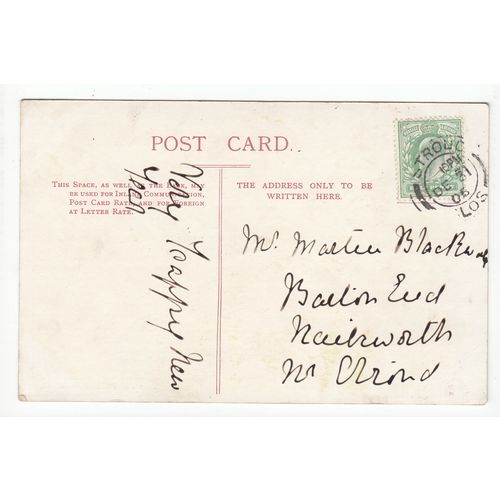 POST CARD.
THIS SPACE, AS WELL AS THE BACK, MAY
BE USED FOR INLAND COMMUNICATION,
POST CARD RATE, AND FOR FOREIGN
AT LETTER RATE.
THE ADDRESS ONLY TO BE
WRITTEN HERE.
Very Happy New
Year
Mr. Martin Blackwell
Balton End
Nailsworth
Nr Stroud
STROUD
DE 31
05